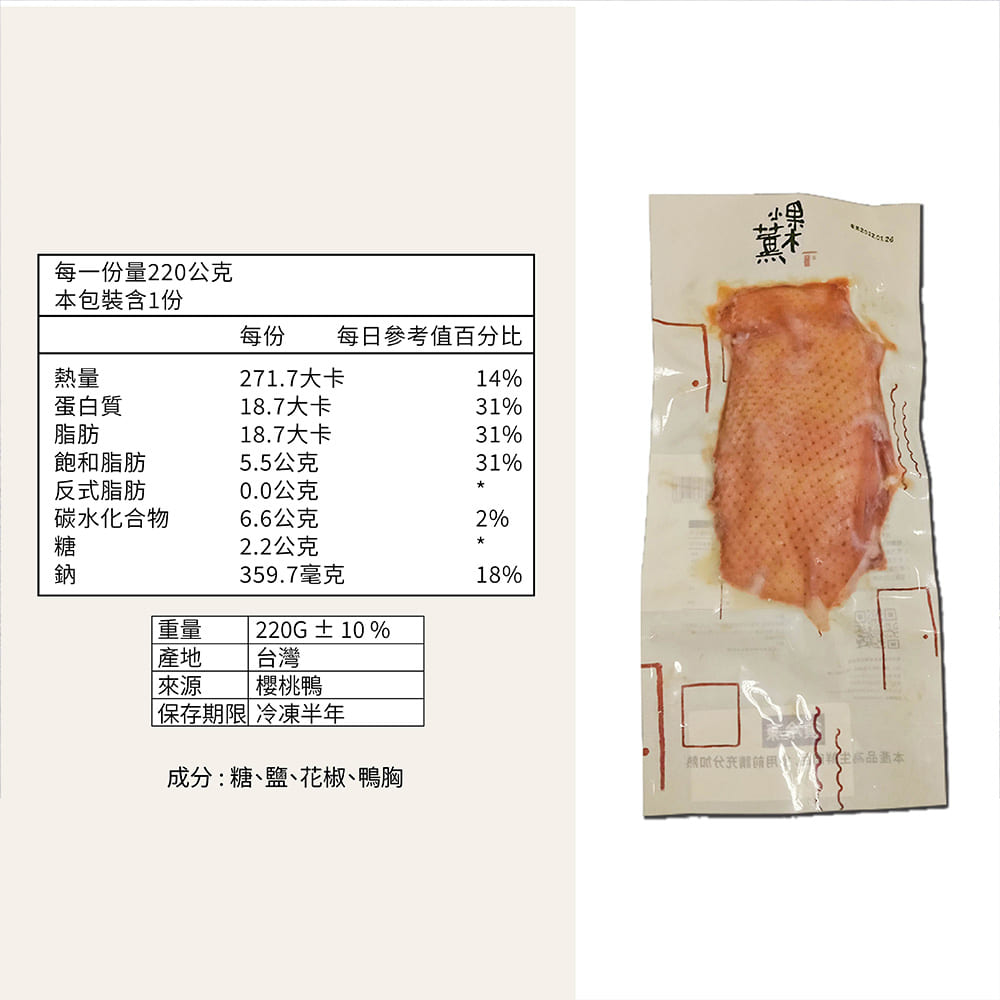 每一份量220公克
本包裝含1份
每份 每日參考值百分比
熱量 271.7大卡 14%
蛋白質 18.7大卡 31%
脂肪 18.7大卡 31%
飽和脂肪 5.5公克 31%
反式脂肪 0.0公克 *
碳水化合物 6.6公克 2%
糖 2.2公克 *
鈉 359.7毫克 18%
重量 220G ± 10 %
產地 台灣
來源 櫻桃鴨
保存期限 冷凍半年
成分 : 糖、鹽、花椒、鴨胸
小果木薰
2022.01.26